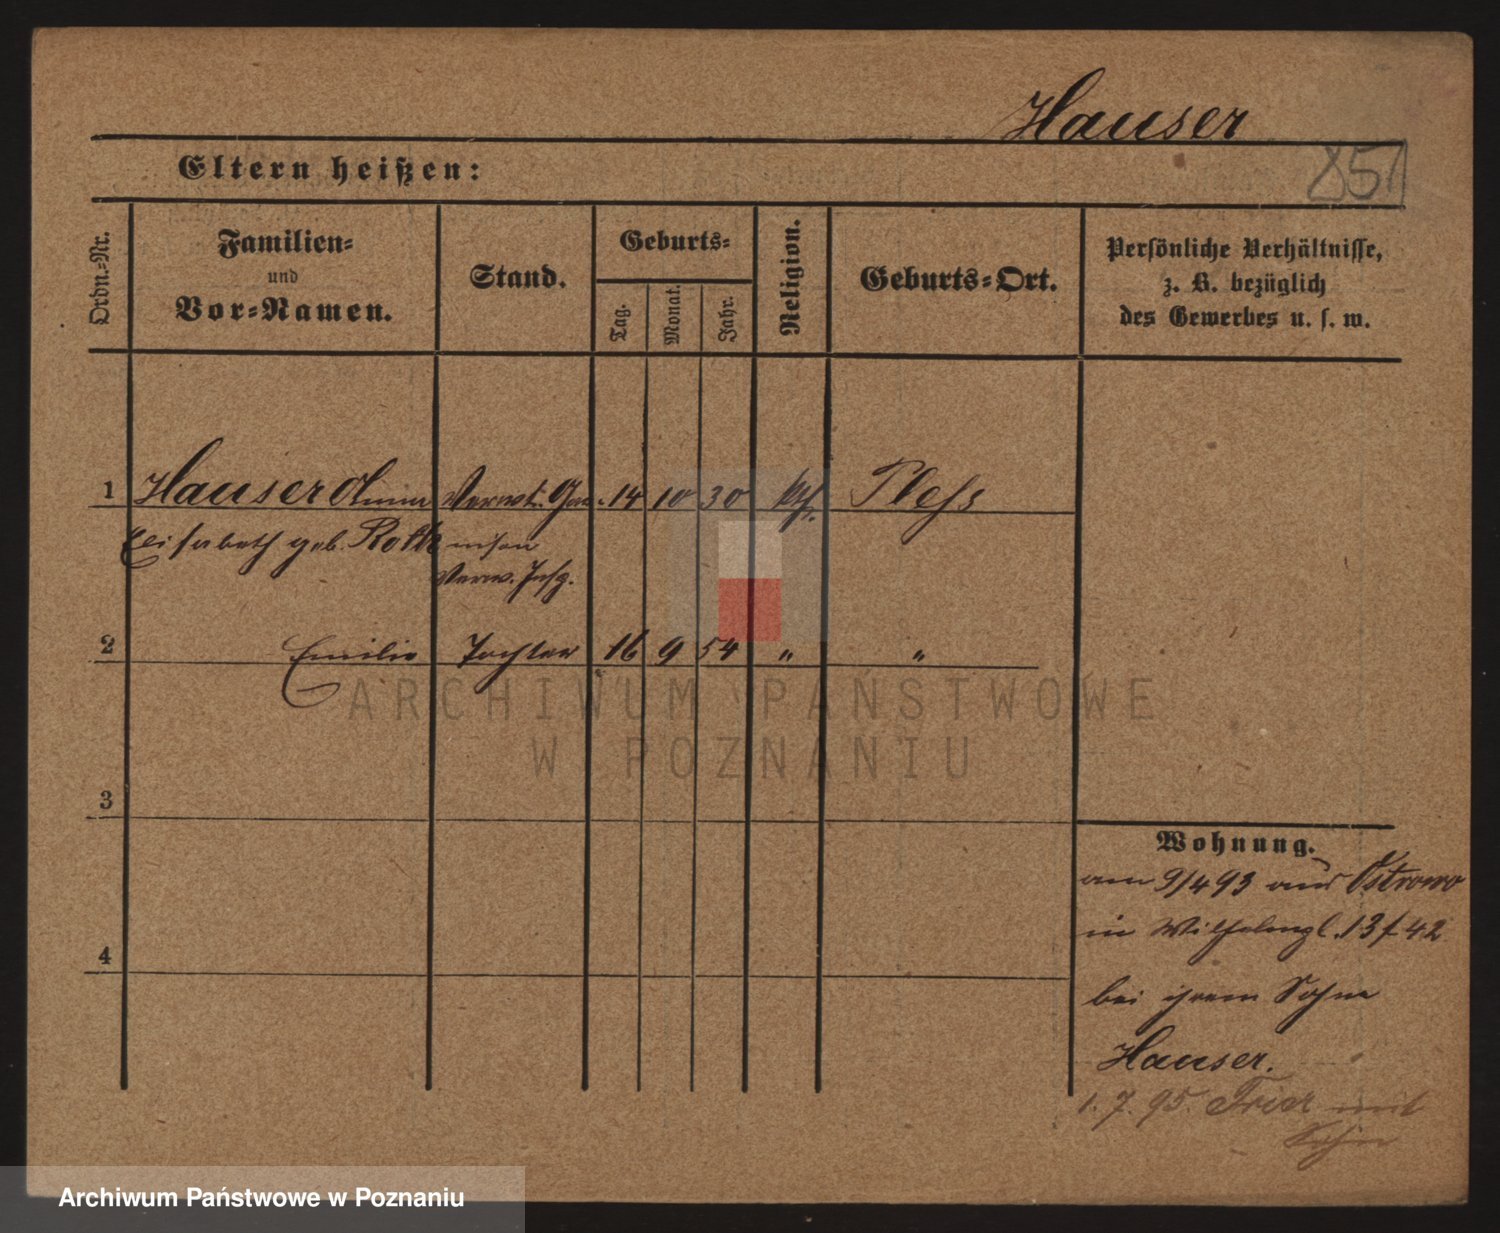 Hauser
851
Eltern heißen:
Ordn.-Nr.
Familien-
und
Vor-Namen.
Stand.
Geburts-
Tag.
Monat.
Jahr.
Religion.
Geburts-Ort.
Persönliche Verhältnisse,
z. B. bezüglich
des Gewerbes u. s. w.
1 Hauser Anna Verwt. 14 10 30 kth. Pless
Elisabeth geb. Roth
Verw. Insp.
2 Emilie Tochter 16 9 54 " "
3
4
Wohnung.
am 9/4 93 aus Ostrowo
in Wilhelmspl. 13 f 42
bei ihrem Sohne
Hauser.
1. 7. 95 Trier mit
Sohn
ARCHIWUM PAŃSTWOWE
W POZNANIU
Archiwum Państwowe w Poznaniu